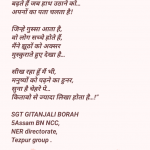 बढ़ते हैं जब हाथ उठाने को...
अपनों का पता चलता है!
जिन्हे गुस्सा आता है,
वो लोग सच्चे होते हैं,
मैंने झूठों को अक्सर
मुस्कुराते हुए देखा है...
सीख रहा हूँ मैं भी,
मनुष्यों को पढ़ने का हुनर,
सुना है चेहरे पे...
किताबों से ज्यादा लिखा होता है...!"
SGT GITANJALI BORAH
5Assam BN NCC,
NER directorate,
Tezpur group .